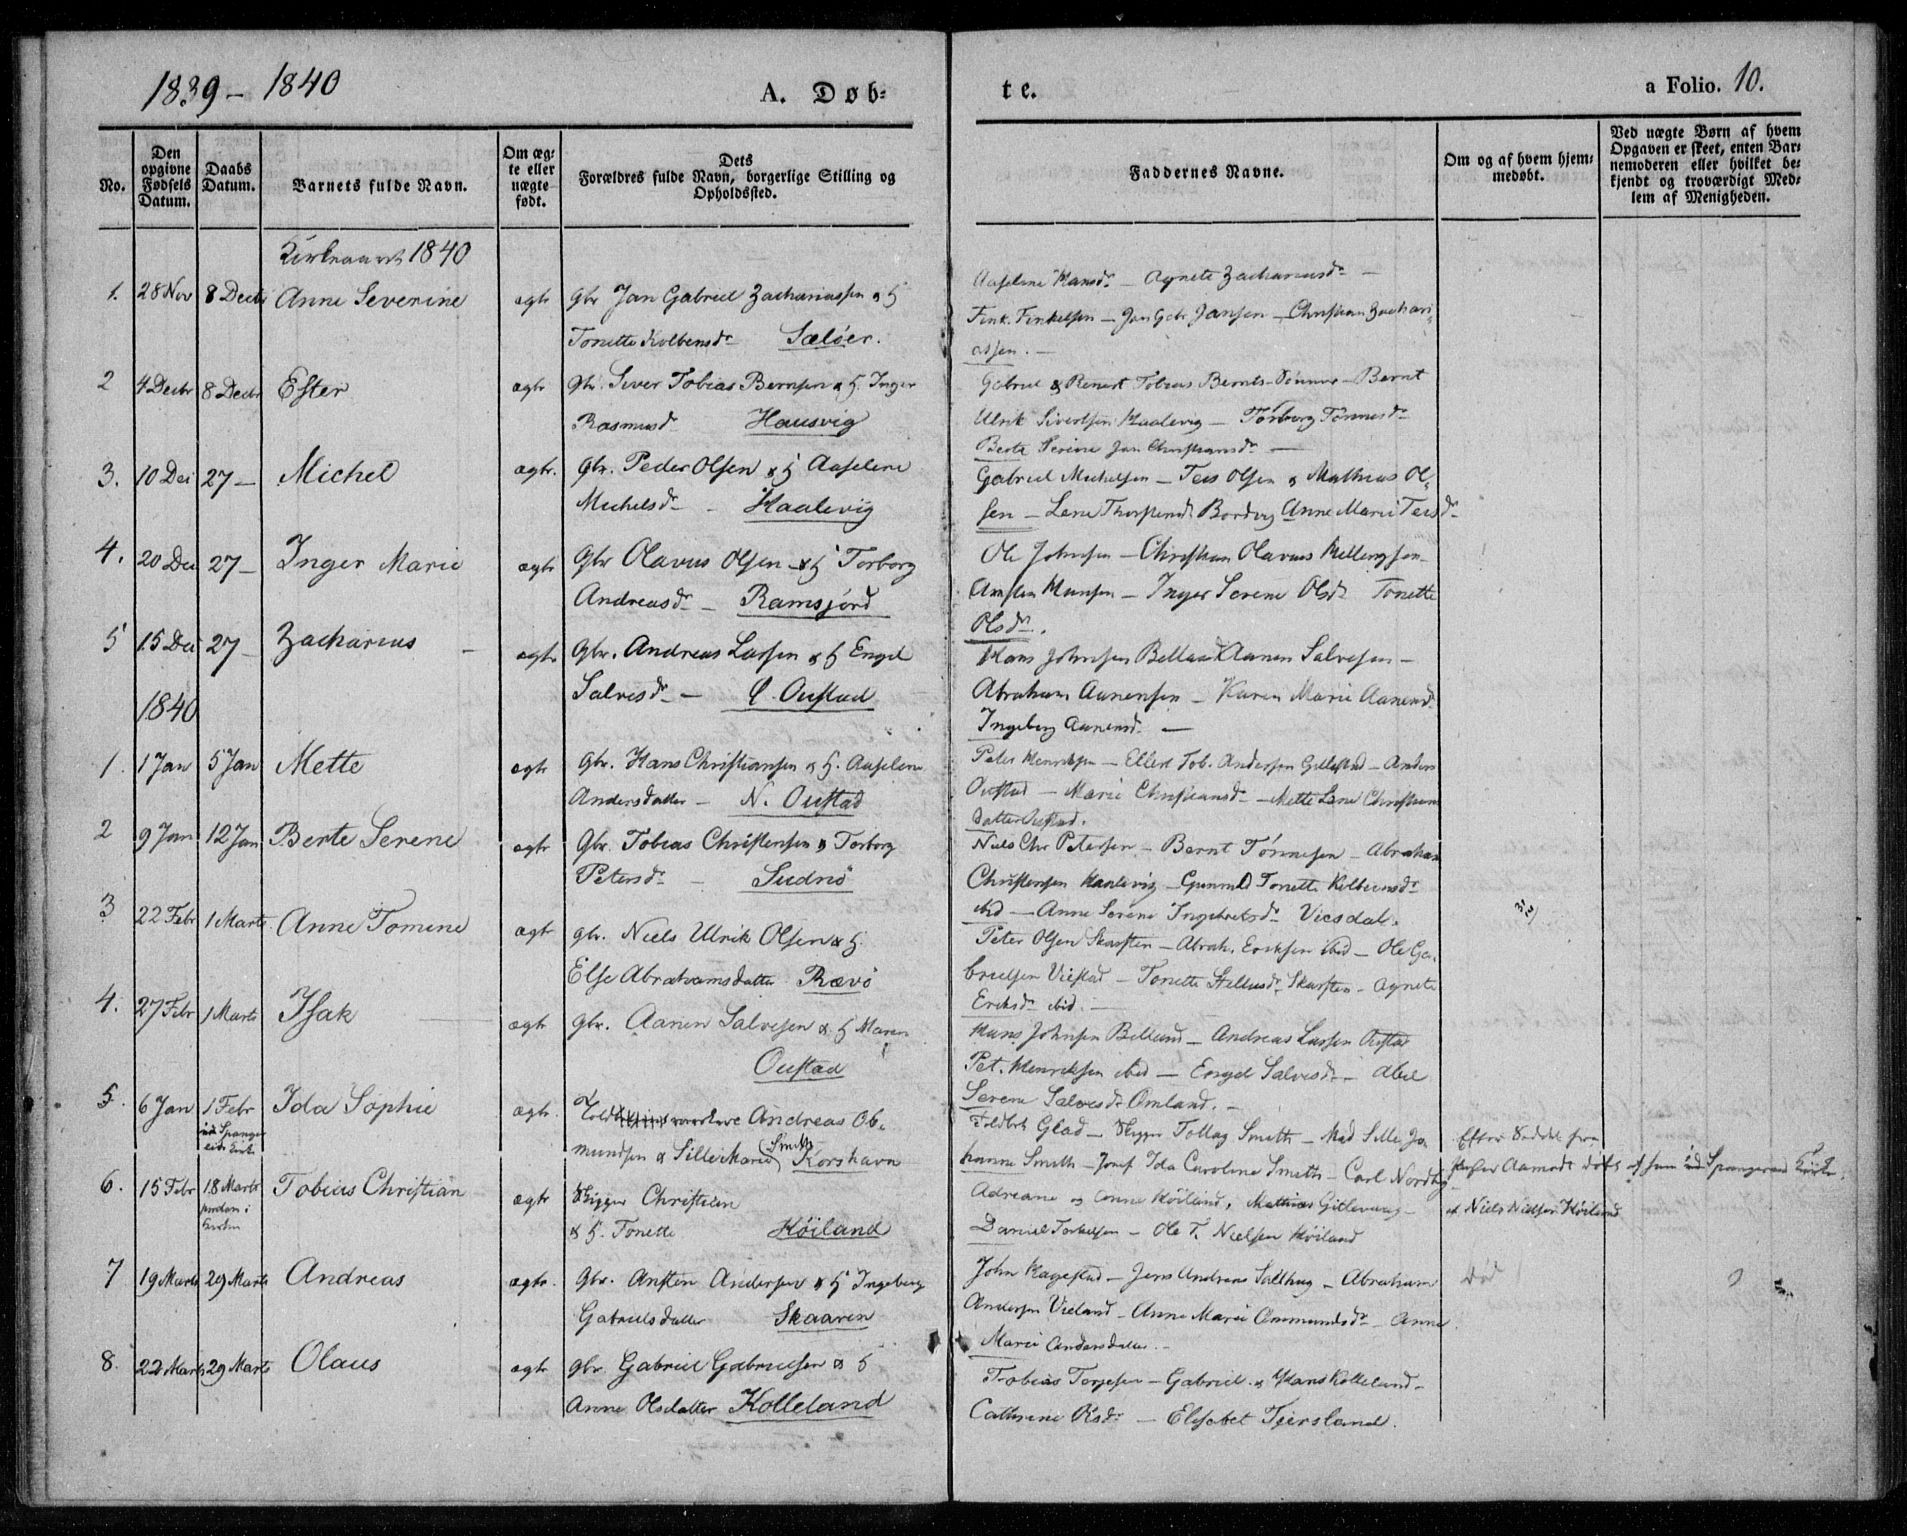 1839 – 1840
A. Døb-
te.
a Folio. 10.
No.
Den opgivne Fødsels Datum.
Daabs Datum.
Barnets fulde Navn.
Om ægte eller uægte født.
Dets
Forældres fulde Navn, borgerlige Stilling og
Opholdssted.
Faddernes Navne.
Om og af hvem hjem-
medøbt.
Ved uægte Børn af hvem
Opgaven er skeet, enten Bar-
nemoderen eller hvilket be-
kjendt og troværdigt Med-
lem af Menigheden.
Kirkeaaret 1840
1. 28 Nov 8 Decbr Anne Severine ægte gbr Jan Gabriel Zachariassen & H
Tonette Kolbensdr Sæløer.
Aaselene Hansdr – Agnete Zachariasdr –
Fink. Finkelsen – Jan Gabr. Jansen – Christian Zachari-
assen. –
2 4 Decbr 8 Decbr Ester ægte gbr. Siver Tobias Bernsen & H. Inger
Rasmusdr Hausvig
Gabriel & Renert Tobias Bernts-Sønner – Bernt
Ulrik Sivertsen Haalevig – Torborg Tønnesdr
Berte Serine Jan Christiansdr –
3. 10 Dec 27 – Michel ægte. gbr. Peder Olsen & H Aaselene
Michelsdr – Haalevig
Gabriel Michelsen – Teis Olsen & Mathias Ol-
sen – Lene Thorstensdr Bordvig Anne Marie Teisdr –
4. 20 Dec 27 – Inger Marie ægte Gbr Olavus Olsen & H Torborg
Andreasdr – Ramsjord
Ole Johnsen – Christian Olavus Kellingsen –
Ansten Hansen – Inger Serene Olsdr Tonette
Olsdr.
5 15 Dec 27 – Zacharius – ægte Gbr. Andreas Larsen & H Engel
Salvesdr – Ø. Oustad
Hans Johnsen Belland Aanen Salvesen –
Abraham Aanensen – Karen Marie Aanensdr
Ingeborg Aanensdr –
1840
1. 1 Jan 5 Jan Mette ægte Gbr. Hans Christiansen & H. Aaselene
Andersdatter – N. Oustad
Peter Henriksen – Ellert Tob. Andersen Gillestad – Anders
Oustad – Marie Christiansd – Mette Lene Christians
datter Oustad.
2 9 Jan 12 Jan Berte Serene ægte Gbr. Tobias Christensen & Torborg
Petersdr – Sudnö
Niels Chr Petersen – Bernt Tönnesen – Abraham
Christensen Haalevig – Gunvald Tonette Kolbensdr
ibid – Anne Serene Ingebretsdr Viesdal.
3 22 Febr 1 Marts Anne Tomine ægte gbr. Niels Ulrik Olsen & H.
Else Abrahamsdatter Rævö
Peter Olsen Skarsten – Abrah. Eriksen ibid – Ole Ga-
brielsen Viestad – Tonette Skarsten – Agnete
Eriksdr ibid. –
4. 27 Febr 1 Marts Isak ægte gbr. Aanen Salvesen & H Maren
Oustad
Hans Johnsen Belland – Andreas Larsen Oustad
Pet. Henriksen ibid – Engel Salvesdr – Abel
Serene Salvesdr Omland. –
5. 6 Jan 1 Febr Ida Sophie ægte. Andreas Ob-
i Spange-
reid Kirke
mundsen & Sille Marie Smith Korshavn
Glad – Skipper Tollag Smith – Mad Sille Jo-
hanne Smith – Jomf Ida Caroline Smith – Carl Nordby
Efter Seddel fra
Aamodt døbt af ham i Spangereid Kirke.
6. 15 Febr 18 Marts Tobias Christian ægte Skipper Christian
& H. Tonette Höiland
Adriane og Anne Höiland, Mathias Gitlevaag –
Daniel Torkelsen – Ole T. Nielsen Höiland
af Niels Nielsen Höiland
7 19 Marts 29 Marts Andreas ægte. Gbr. Ansten Andersen & H Ingeborg
Gabrielsdatter Skaaren
John Kagestad – Jens Andreas Salthug – Abraham
Andersen Vieland – Anne Marie Ommundsdr – Anne
Marie Andersdatter. –
Død
8. 22 Marts 29 Marts Olaus ægte gbr. Gabriel Gabrielsen & H
Anne Olsdatter Kolleland
Tobias Torjesen – Gabriel & Hans Kolleland –
Cathrine Olsdr – Elisabet Tjersland.